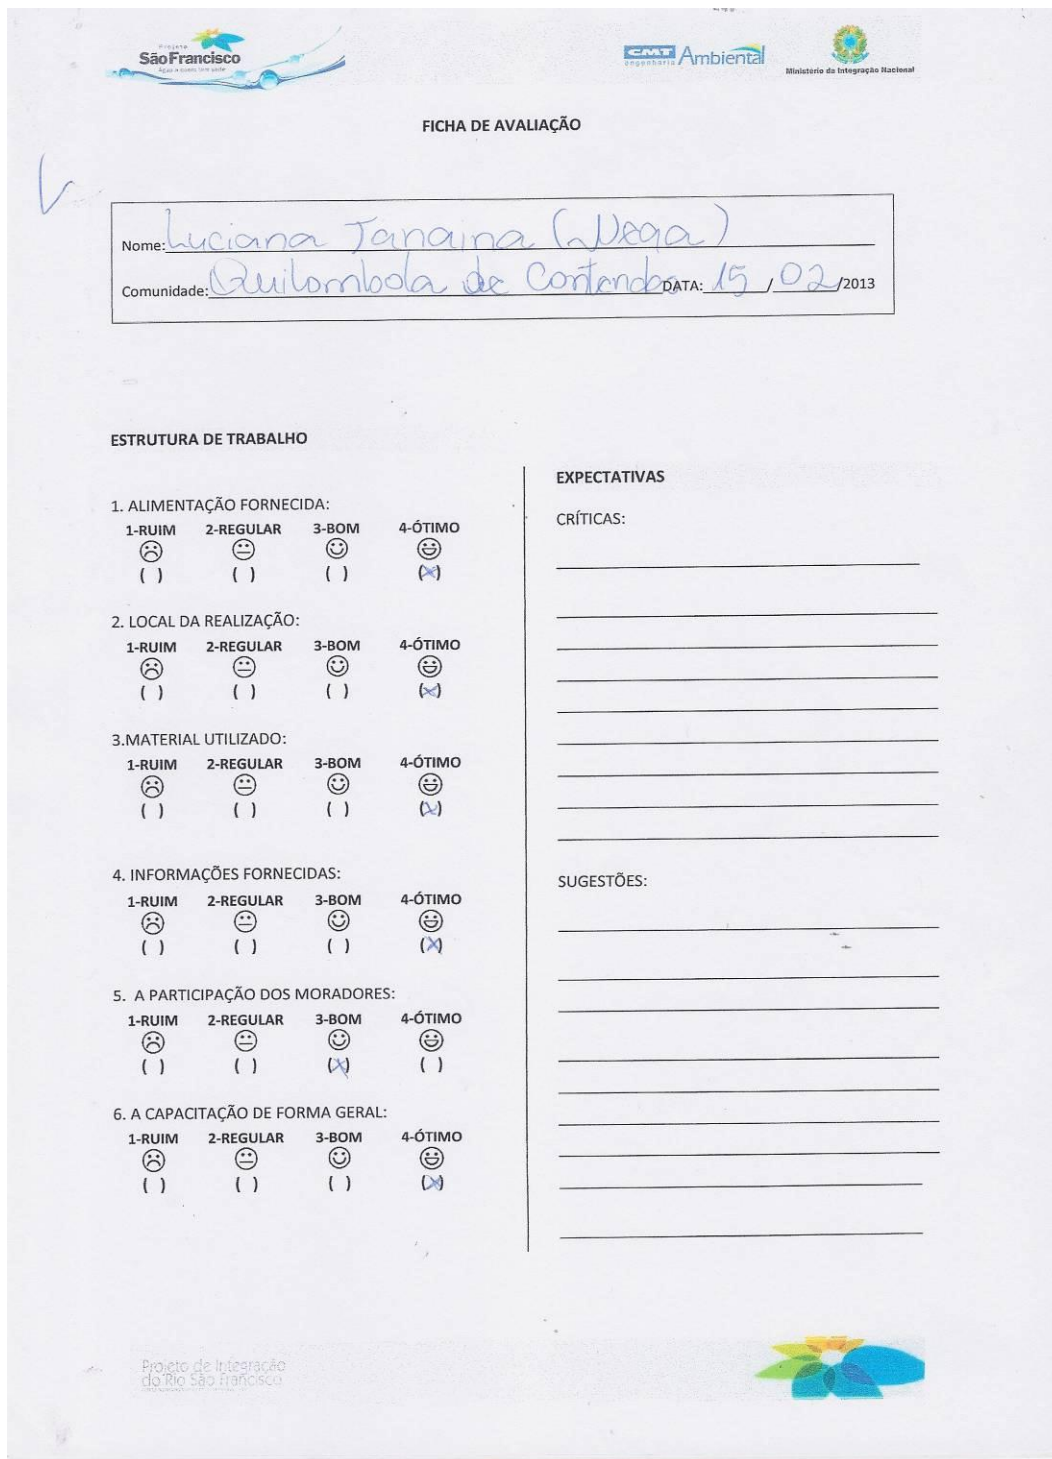 Projeto
São Francisco
CMT
engenharia
Ambiental
Ministério da Integração Nacional
FICHA DE AVALIAÇÃO
Nome: Luciana Janaina (Nega)
Comunidade: Quilombola de Contendas DATA: 15/02/2013
ESTRUTURA DE TRABALHO
1. ALIMENTAÇÃO FORNECIDA:
1-RUIM 2-REGULAR 3-BOM 4-ÓTIMO
( ) ( ) ( ) (x)
2. LOCAL DA REALIZAÇÃO:
1-RUIM 2-REGULAR 3-BOM 4-ÓTIMO
( ) ( ) ( ) (x)
3.MATERIAL UTILIZADO:
1-RUIM 2-REGULAR 3-BOM 4-ÓTIMO
( ) ( ) ( ) (x)
4. INFORMAÇÕES FORNECIDAS:
1-RUIM 2-REGULAR 3-BOM 4-ÓTIMO
( ) ( ) ( ) (x)
5. A PARTICIPAÇÃO DOS MORADORES:
1-RUIM 2-REGULAR 3-BOM 4-ÓTIMO
( ) ( ) (x) ( )
6. A CAPACITAÇÃO DE FORMA GERAL:
1-RUIM 2-REGULAR 3-BOM 4-ÓTIMO
( ) ( ) ( ) (x)
EXPECTATIVAS
CRÍTICAS:
SUGESTÕES:
Projeto de Integração
do Rio São Francisco